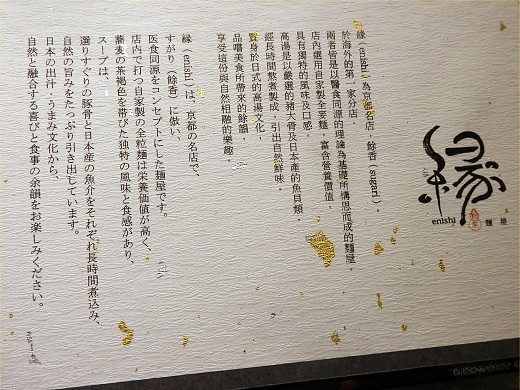 縁
enishi
麺屋
縁（enishi）為京都名店，餘香（sugari），
於海外的第一家分店。
兩者皆是以醫食同源的理論為基礎所構思而成的麵屋，
店內選用自家製全麥麵，富含營養價值，
具有獨特的風味及口感。
高湯是以嚴選的豬大骨及日本産的魚貝類，
經長時間熬煮製成，引出自然鮮味。
置身於日式的高湯文化，
品嚐美食所帶來的餘韻，
享受這份與自然相融的樂趣。
縁（enishi）は、京都の名店で、
すがり（餘香）に倣い、
医食同源をコンセプトにした麺屋です。
店内で打つ自家製の全粒麺は栄養価値が高く、
蕎麦の茶褐色を帯びた独特の風味と食感があり、
スープは、
選りすぐりの豚骨と日本産の魚介をそれぞれ長時間煮込み、
自然の旨みをたっぷり引き出しています。
日本の出汁・うまみ文化から、
自然と融合する喜びと食事の余韻をお楽しみください。